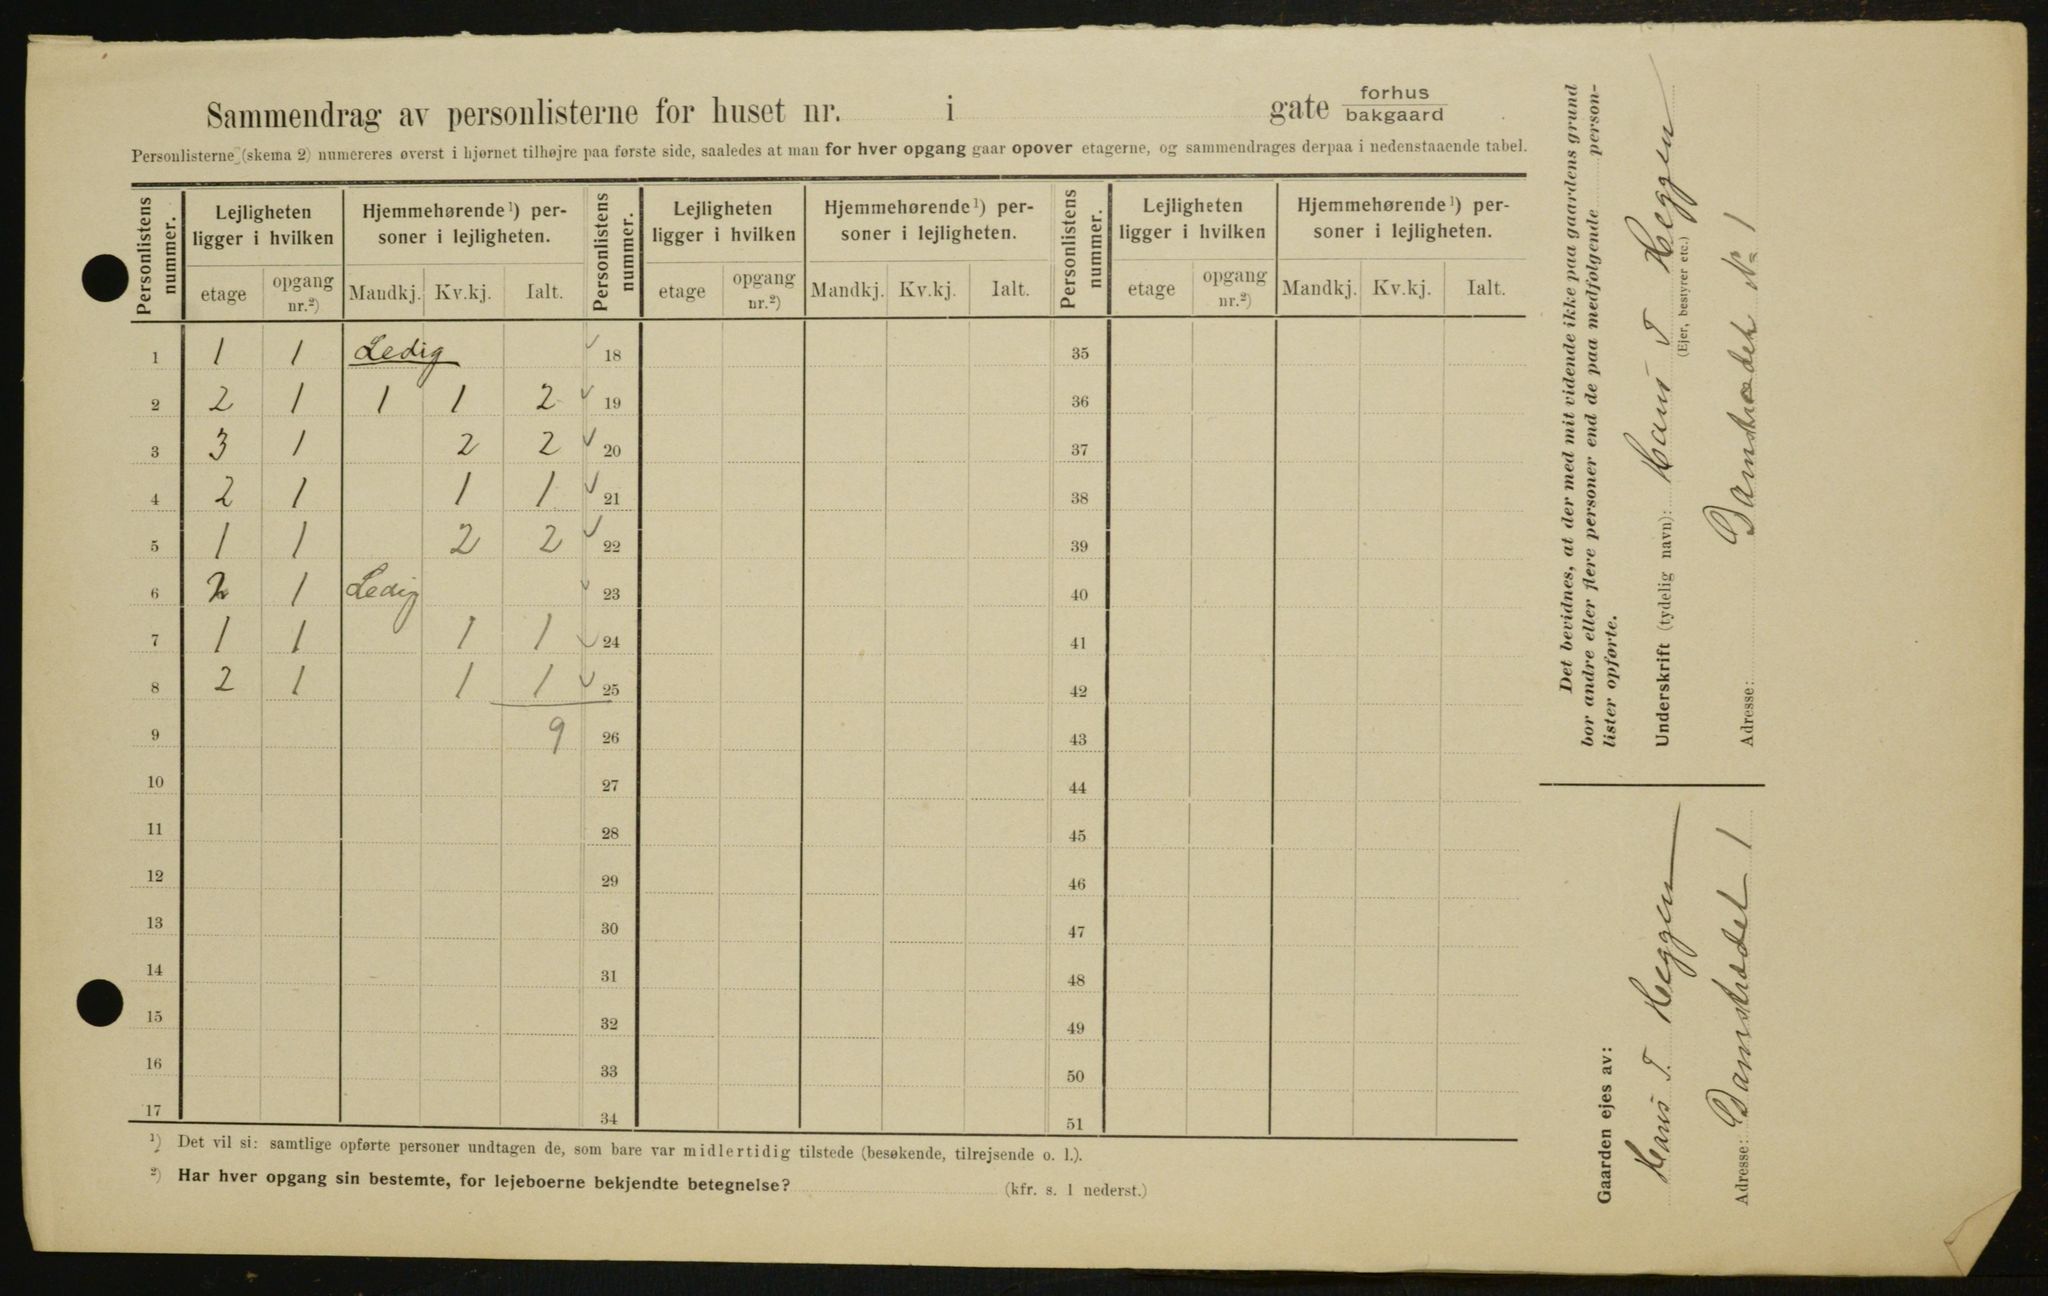 Sammendrag av personlisterne for huset nr. i gate forhus bakgaard
Personlisterne (skema 2) numereres øverst i hjørnet tilhøjre paa første side, saaledes at man for hver opgang gaar opover etagerne, og sammendrages derpaa i nedenstaaende tabel.
Personlistens nummer. Lejligheten ligger i hvilken Hjemmehørende ¹) personer i lejligheten. Personlistens nummer. Lejligheten ligger i hvilken Hjemmehørende ¹) personer i lejligheten. Personlistens nummer. Lejligheten ligger i hvilken Hjemmehørende ¹) personer i lejligheten.
etage opgang nr.²) Mandkj. Kv.kj. Ialt. etage opgang nr.²) Mandkj. Kv.kj. Ialt. etage opgang nr.²) Mandkj. Kv.kj. Ialt.
1 1 1 Ledig ✓ 18 35
2 2 1 1 1 2 ✓ 19 36
3 3 1 2 2 ✓ 20 37
4 2 1 1 1 ✓ 21 38
5 1 1 2 2 ✓ 22 39
6 2 1 Ledig ✓ 23 40
7 1 1 1 1 ✓ 24 41
8 2 1 1 1 ✓ 25 42
9 9 26 43
10 27 44
11 28 45
12 29 46
13 30 47
14 31 48
15 32 49
16 33 50
17 34 51
¹) Det vil si: samtlige opførte personer undtagen de, som bare var midlertidig tilstede (besøkende, tilrejsende o. l.).
²) Har hver opgang sin bestemte, for lejeboerne bekjendte betegnelse? (kfr. s. 1 nederst.)
Det bevidnes, at der med mit vidende ikke paa gaardens grund
bor andre eller flere personer end de paa medfølgende person-
lister opførte.
Underskrift (tydelig navn): Hans T Heggen
(Ejer, bestyrer etc.)
Adresse: Damstrædet № 1
Gaarden ejes av:
Hans T. Heggen
Adresse: Damstrædet 1